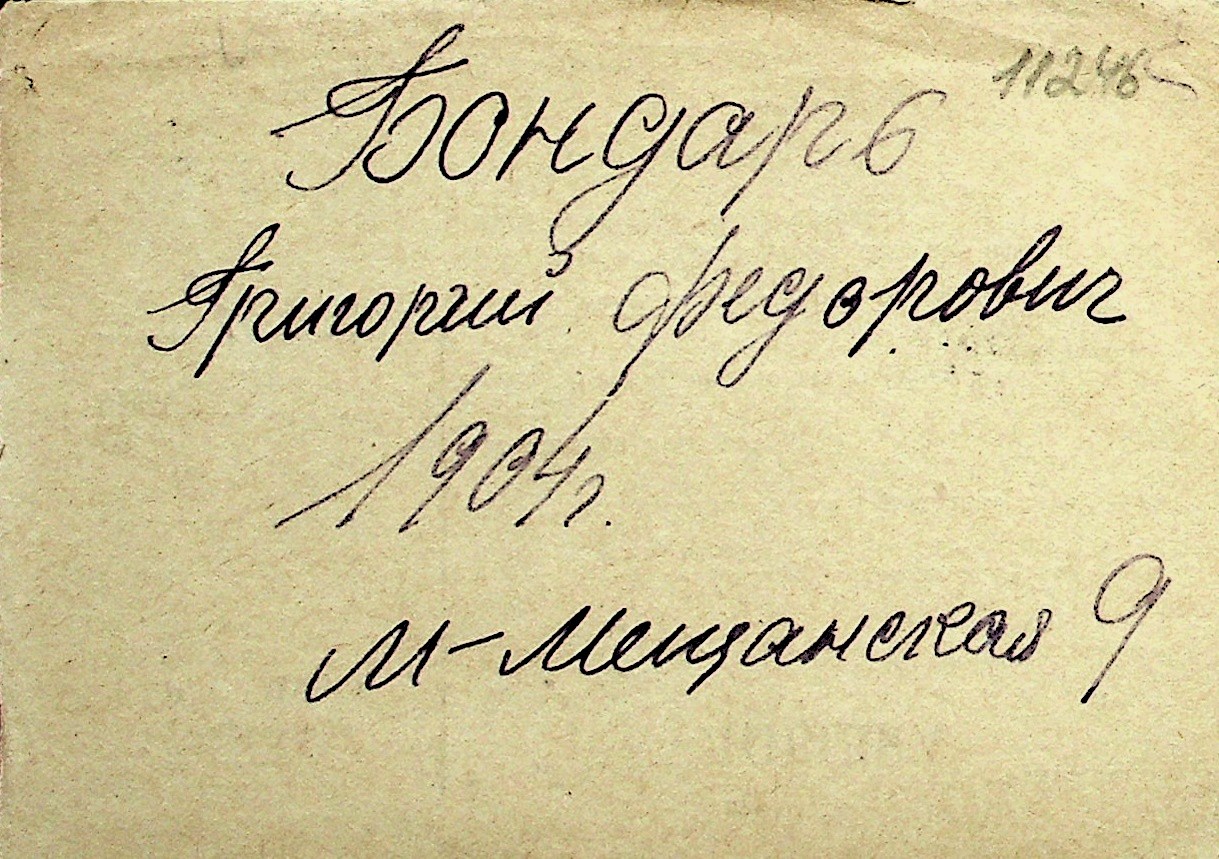 11246
Бондарь
Григорий Федорович
1904г.
М-Мещанская 9